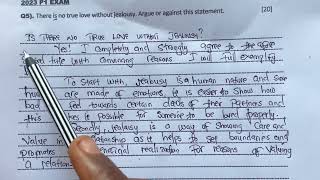 2023 P1 EXAM
Q5). There is no true love without jealousy. Argue or against this statement. [20]
IS THERE NO TRUE LOVE WITHOUT JEALOUSY?
Yes! I Completely and Strongly agree to the above
title with Convincing reasons I will exemplify...
To Start with, Jealousy is a human nature and see
are made of emotions, it is easier to show how
bad towards certain of their Partners and
this it Possible for Someone to be bored Properly.
Jealousy is a way of showing Care and
Value in as it helps to set boundaries and
Promotes realization for reasons of Valuing
a